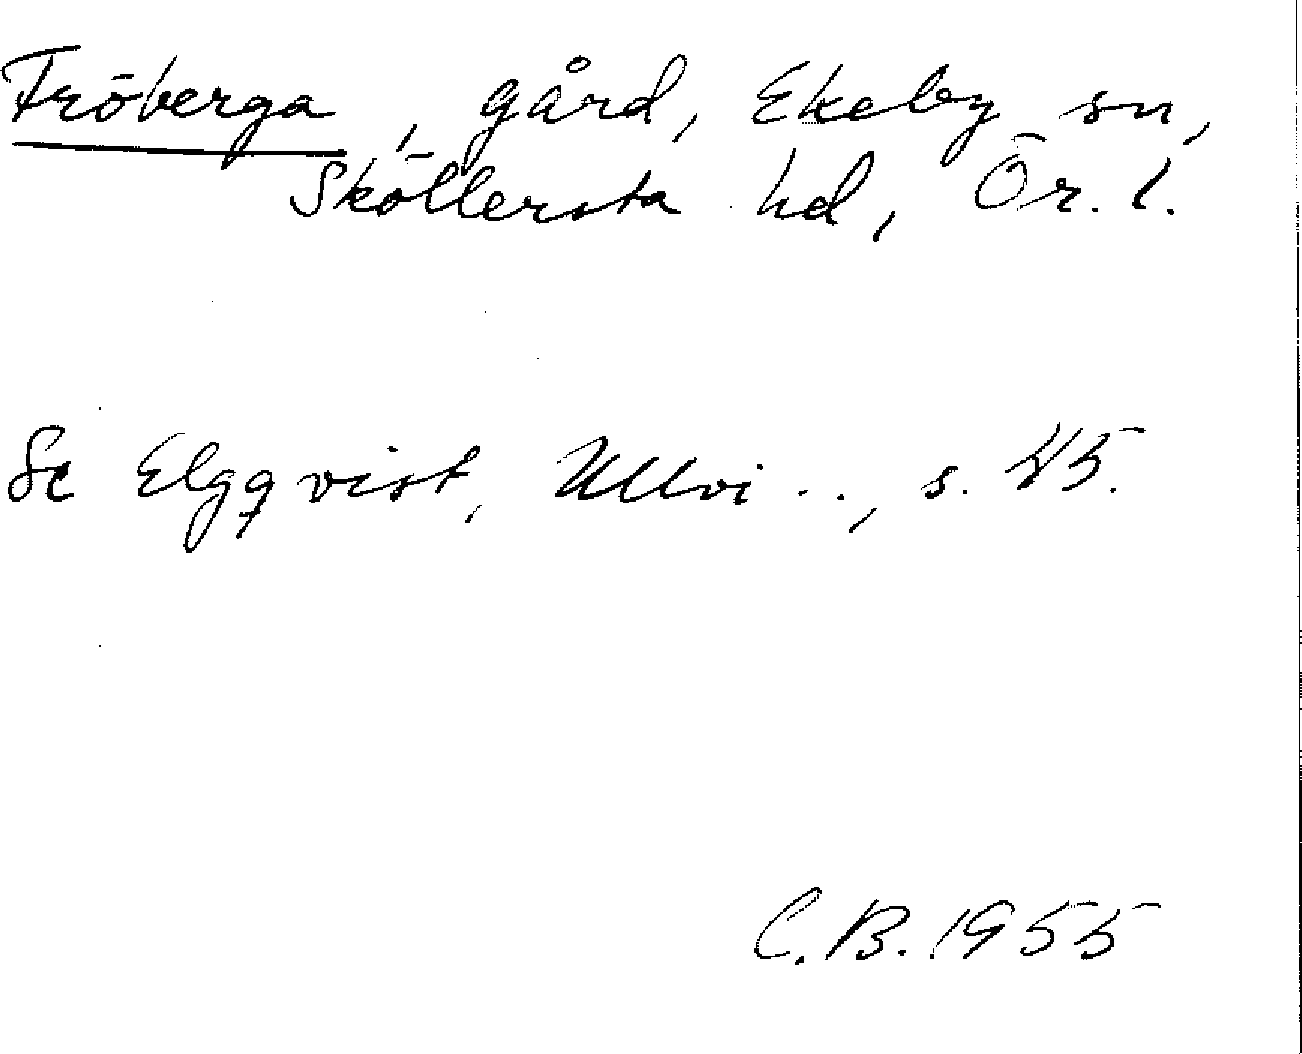 Fröberga, gård, Ekeby sn,
Sköllersta hd, Ör. l.
Se Elgqvist, Ullvi .., s. 45.
C.B. 1955